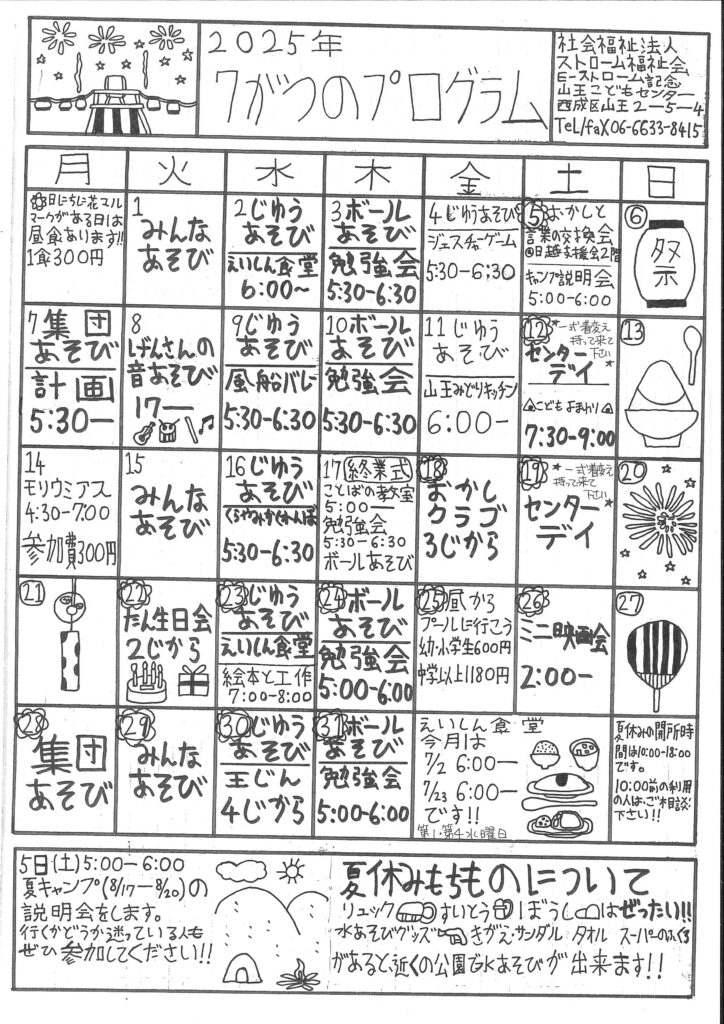 2025年
7がつのプログラム
社会福祉法人
ストローム福祉会
E-ストローム記念
山王こどもセンター
西成区山王2-5-4
Tel/fax06-6633-8415
月 火 水 木 金 土 日
日にちに花マル
マークがある日は
昼食あります!!
1食300円
1
みんな
あそび
2じゆう
あそび
えいしん食堂
6:00〜
3ボール
あそび
勉強会
5:30-6:30
4じゆうあそび
ジェスチャーゲーム
5:30-6:30
5おかしと
言葉の交換会
@日越支援会2階
キャンプ説明会
5:00-6:00
6
祭
7集団
あそび
計画
5:30―
8
げんさんの
音あそび
17―
9じゆう
あそび
風船バレー
5:30-6:30
10ボール
あそび
勉強会
5:30-6:30
11じゆう
あそび
山王みどりキッチン
6:00-
12
*一式着替え
持って来て
下さい*
センター
デイ
こどもよまわり
7:30-9:00
13
14
モリウミアス
4:30-7:00
参加費300円
15
みんな
あそび
16じゆう
あそび
くらやみかくれんぼ
5:30-6:30
17終業式
ことばの教室
5:00―
勉強会
5:30-6:30
ボールあそび
18
おかし
クラブ
3じから
19
*一式着替え
持って来て
下さい*
センター
デイ
20
21
22
たん生日会
2じから
23じゆう
あそび
えいしん食堂
絵本と工作
7:00-8:00
24ボール
あそび
勉強会
5:00-6:00
25昼から
プールに行こう
幼・小学生600円
中学以上1180円
26
ミニ映画会
2:00-
27
28
集団
あそび
29
みんな
あそび
30じゆう
あそび
王じん
4じから
31ボール
あそび
勉強会
5:00-6:00
えいしん食堂
今月は
7/2 6:00―
7/23 6:00―
です!!
第1・第4水曜日
夏休みの開所時
間は10:00-18:00
です。
10:00前の利用
の人は、ご相談
下さい!!
5日(土)5:00-6:00
夏キャンプ(8/17―8/20)の
説明会をします。
行くかどうか迷っている人も
ぜひ参加してください!!
夏休みもちものについて
リュック すいとう ぼうし はぜったい!!
水あそびグッズ きがえ・サンダル タオル スーパーのふくろ
があると、近くの公園で水あそびが出来ます!!